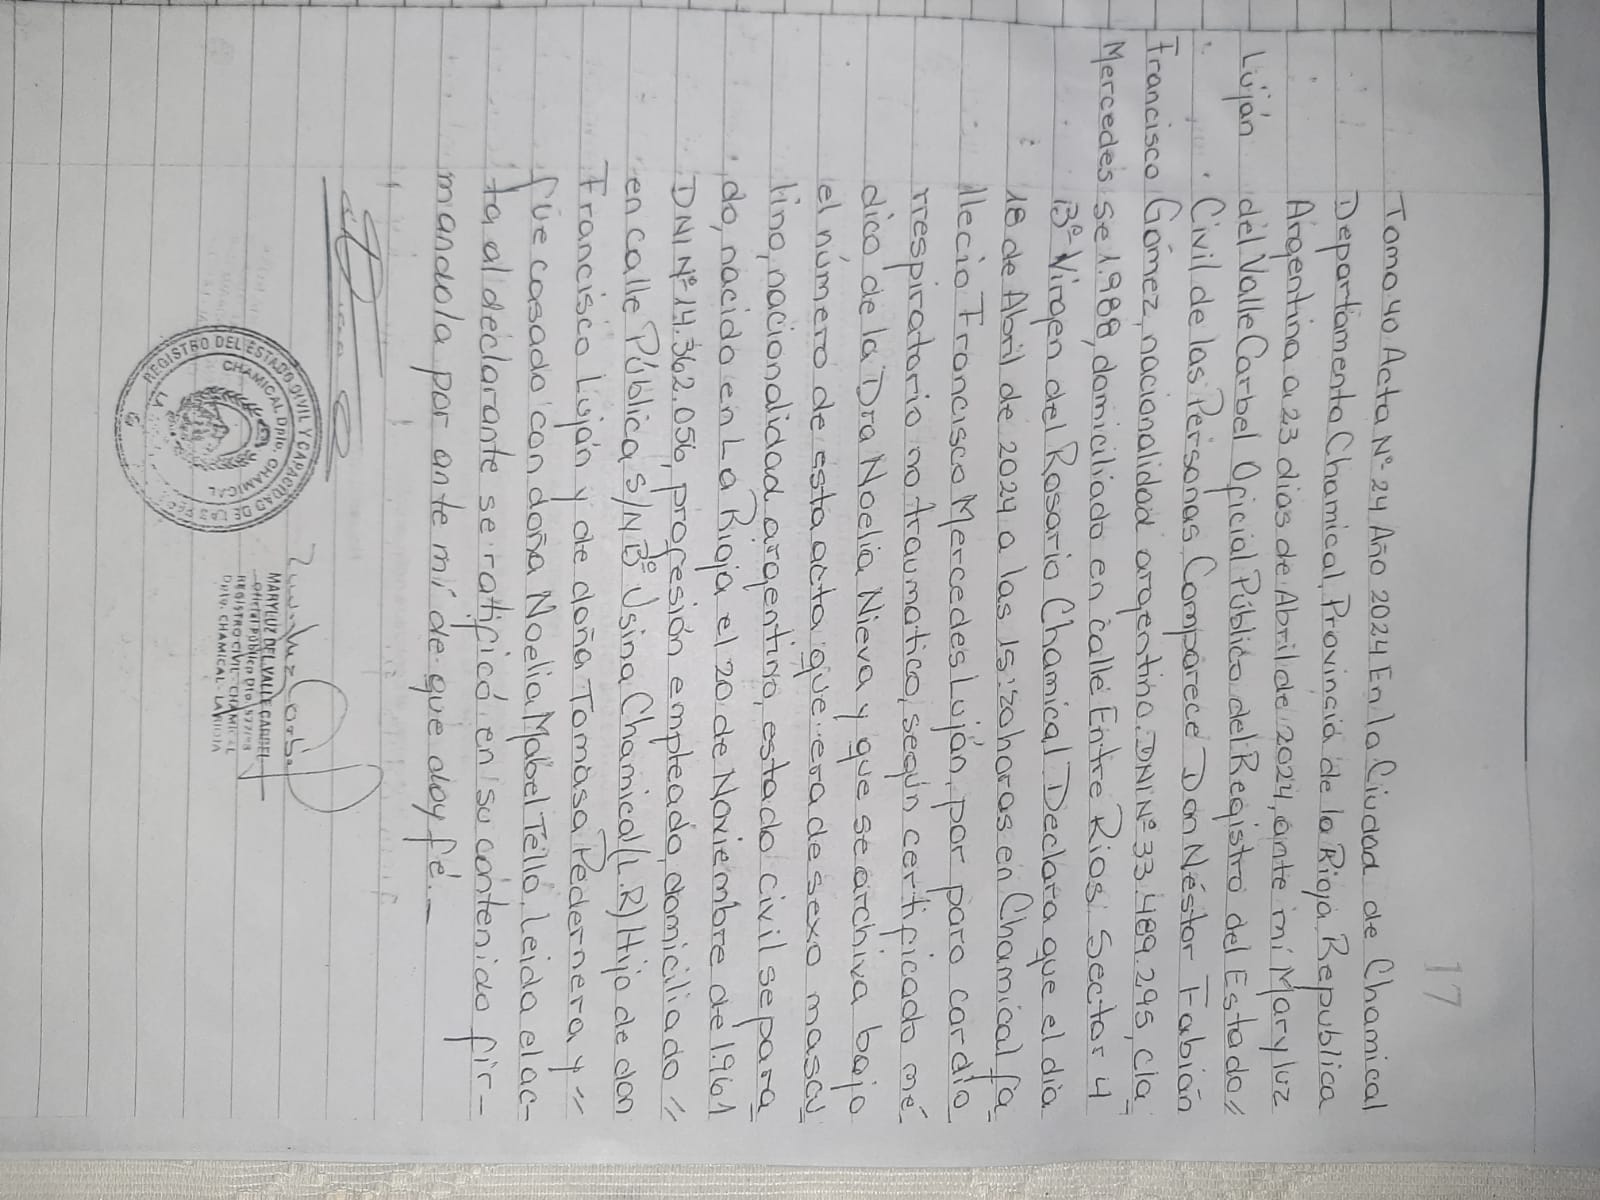 17
Tomo 40 Acta Nº 24 Año 2024 En la Ciudad de Chamical
Departamento Chamical, Provincia de la Rioja, Republica
Argentina a 23 dias de Abril de 2024, ante mí Maryluz
Luján del Valle Carbel Oficial Público del Registro del Estado //
Civil de las Personas, Comparece Don Néstor Fabián
Francisco Gómez, nacionalidad argentino. DNI Nº 33.489.295, cla
Mercedes se 1.988, domiciliado en calle Entre Rios Sector 4
Bº Virgen del Rosario Chamical Declara que el dia
18 de Abril de 2024 a las 15:20 horas en Chamical fa
llecio Francisco Mercedes Luján, por paro cardio
rrespiratorio no traumatico, según certificado mé
dico de la Dra Noelia Nieva y que se archiva bajo
el número de esta acta que era de sexo mascu
lino, nacionalidad argentino, estado civil separa
do, nacido en La Rioja el 20 de Noviembre de 1.961
DNI Nº 14.362.056, profesión empleado, domiciliado //
en calle Pública S/N Bº Usina Chamical (L.R) Hijo de don
Francisco Luján y de doña Tomasa Pedernera y //
fue casado con doña Noelia Mabel Tello, Leida el ac-
ta al declarante se ratificó en su contenido fir-
mandola por ante mí de que doy fé.-
REGISTRO DEL ESTADO CIVIL Y CAPACIDAD DE LAS PER
CHAMICAL Dpto. CHAMICAL
MARYLUZ DEL VALLE CARBEL
OFICIAL PUBLICO
REGISTRO CIVIL - CHAMICAL
Dpto. CHAMICAL - LA RIOJA